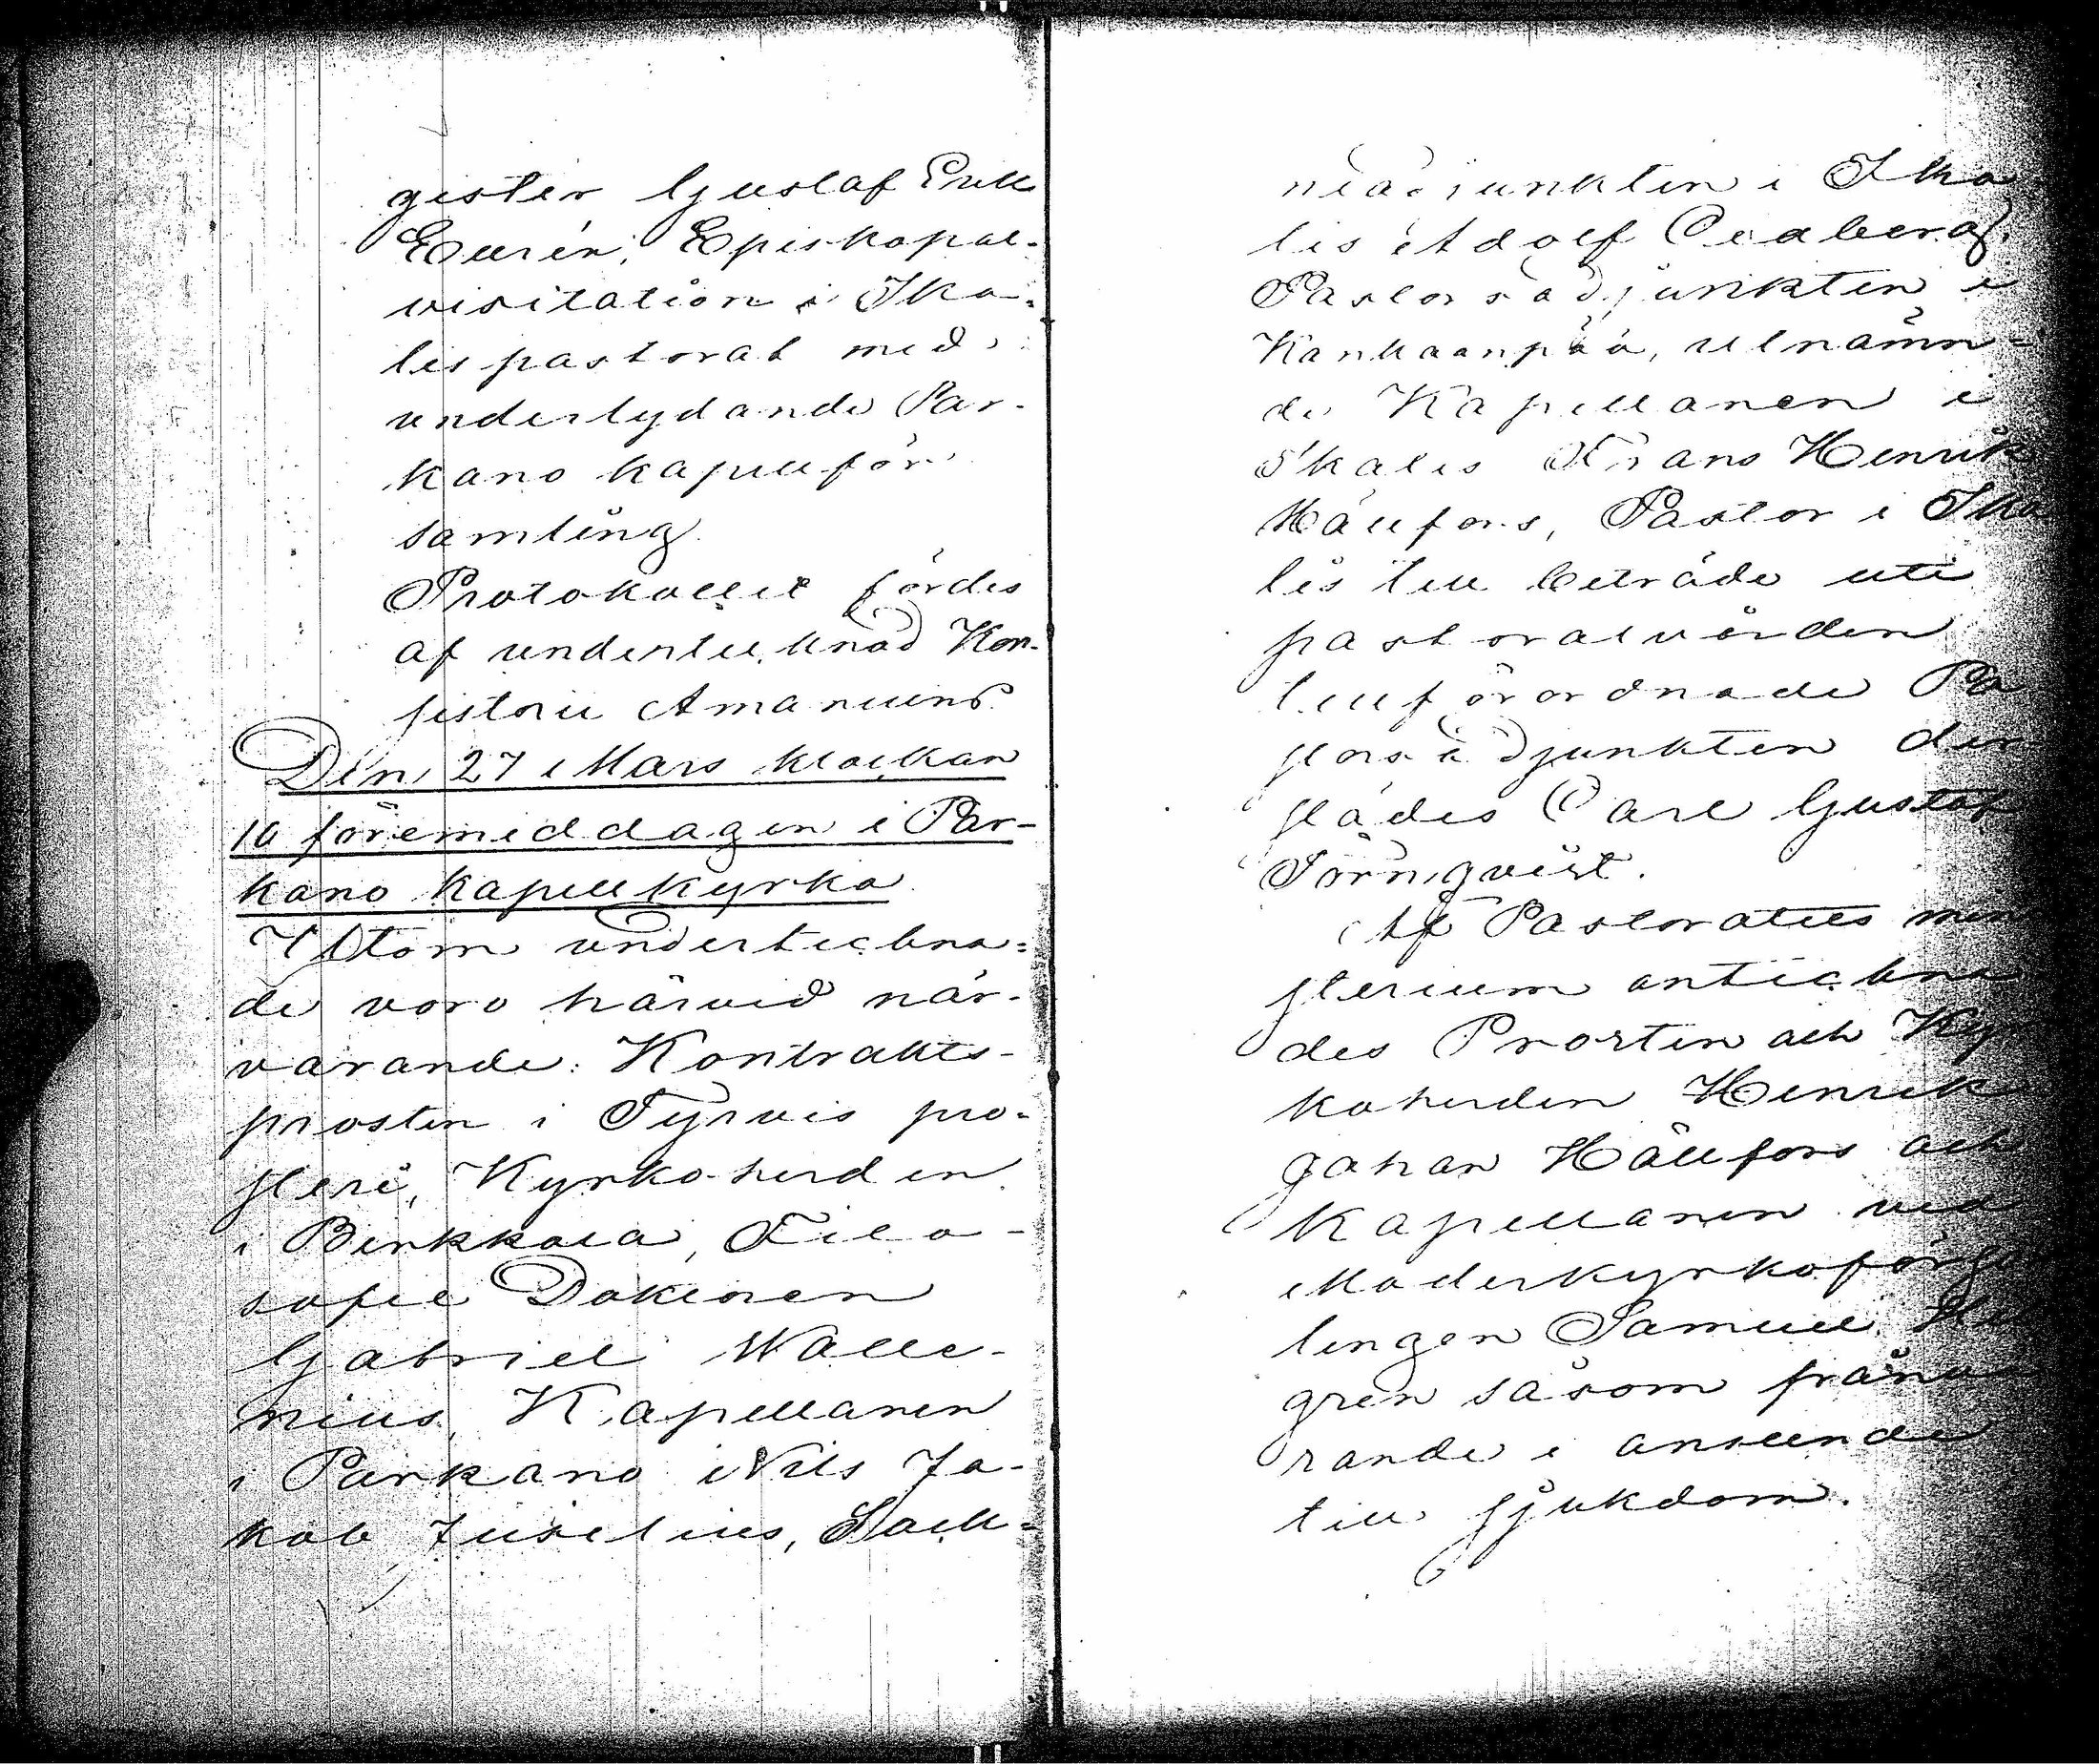 gister Gustaf Erik
Eurén, Episkopal-
visitation i Ika-
lis pastorat med
underlydande Par-
kano kapellför
samling.
Protokollet fördes
af undertecknad Kon-
sistorii Amanuens.
Den 27 Mars klockan
10 föremiddagen i Par-
kano kapellkyrka.
Utom underteckna-
de voro härvid när-
varande: Kontrakts-
prosten i Tyrvis pro-
steri, Kyrkoherden
i Birkkala, Filo-
sofie Doktoren
Gabriel Walle-
nius, Kapellanen
i Parkano Nils Ja-
kob Juselius, Sock-
neadjunkten i Ika
lis Adolf Cedberg,
Pastorsadjunkten i
Kankaanpää, utnämn-
de Kapellanen i
Ikalis Frans Henrik
Hällfors, Pastor i Ika
lis till biträde uti
pastoralvården
tillförordnade Pa
storsadjunkten der
städes Carl Gustaf
Törnqvist.
Af Pastoratets min
sterium anteckna
des Prosten och Kyr
koherden Henrik
Johan Hällfors och
Kapellanen vid
Moderkyrkoförsa
lingen Samuel
gren såsom frånva
rande i anseende
till sjukdom.